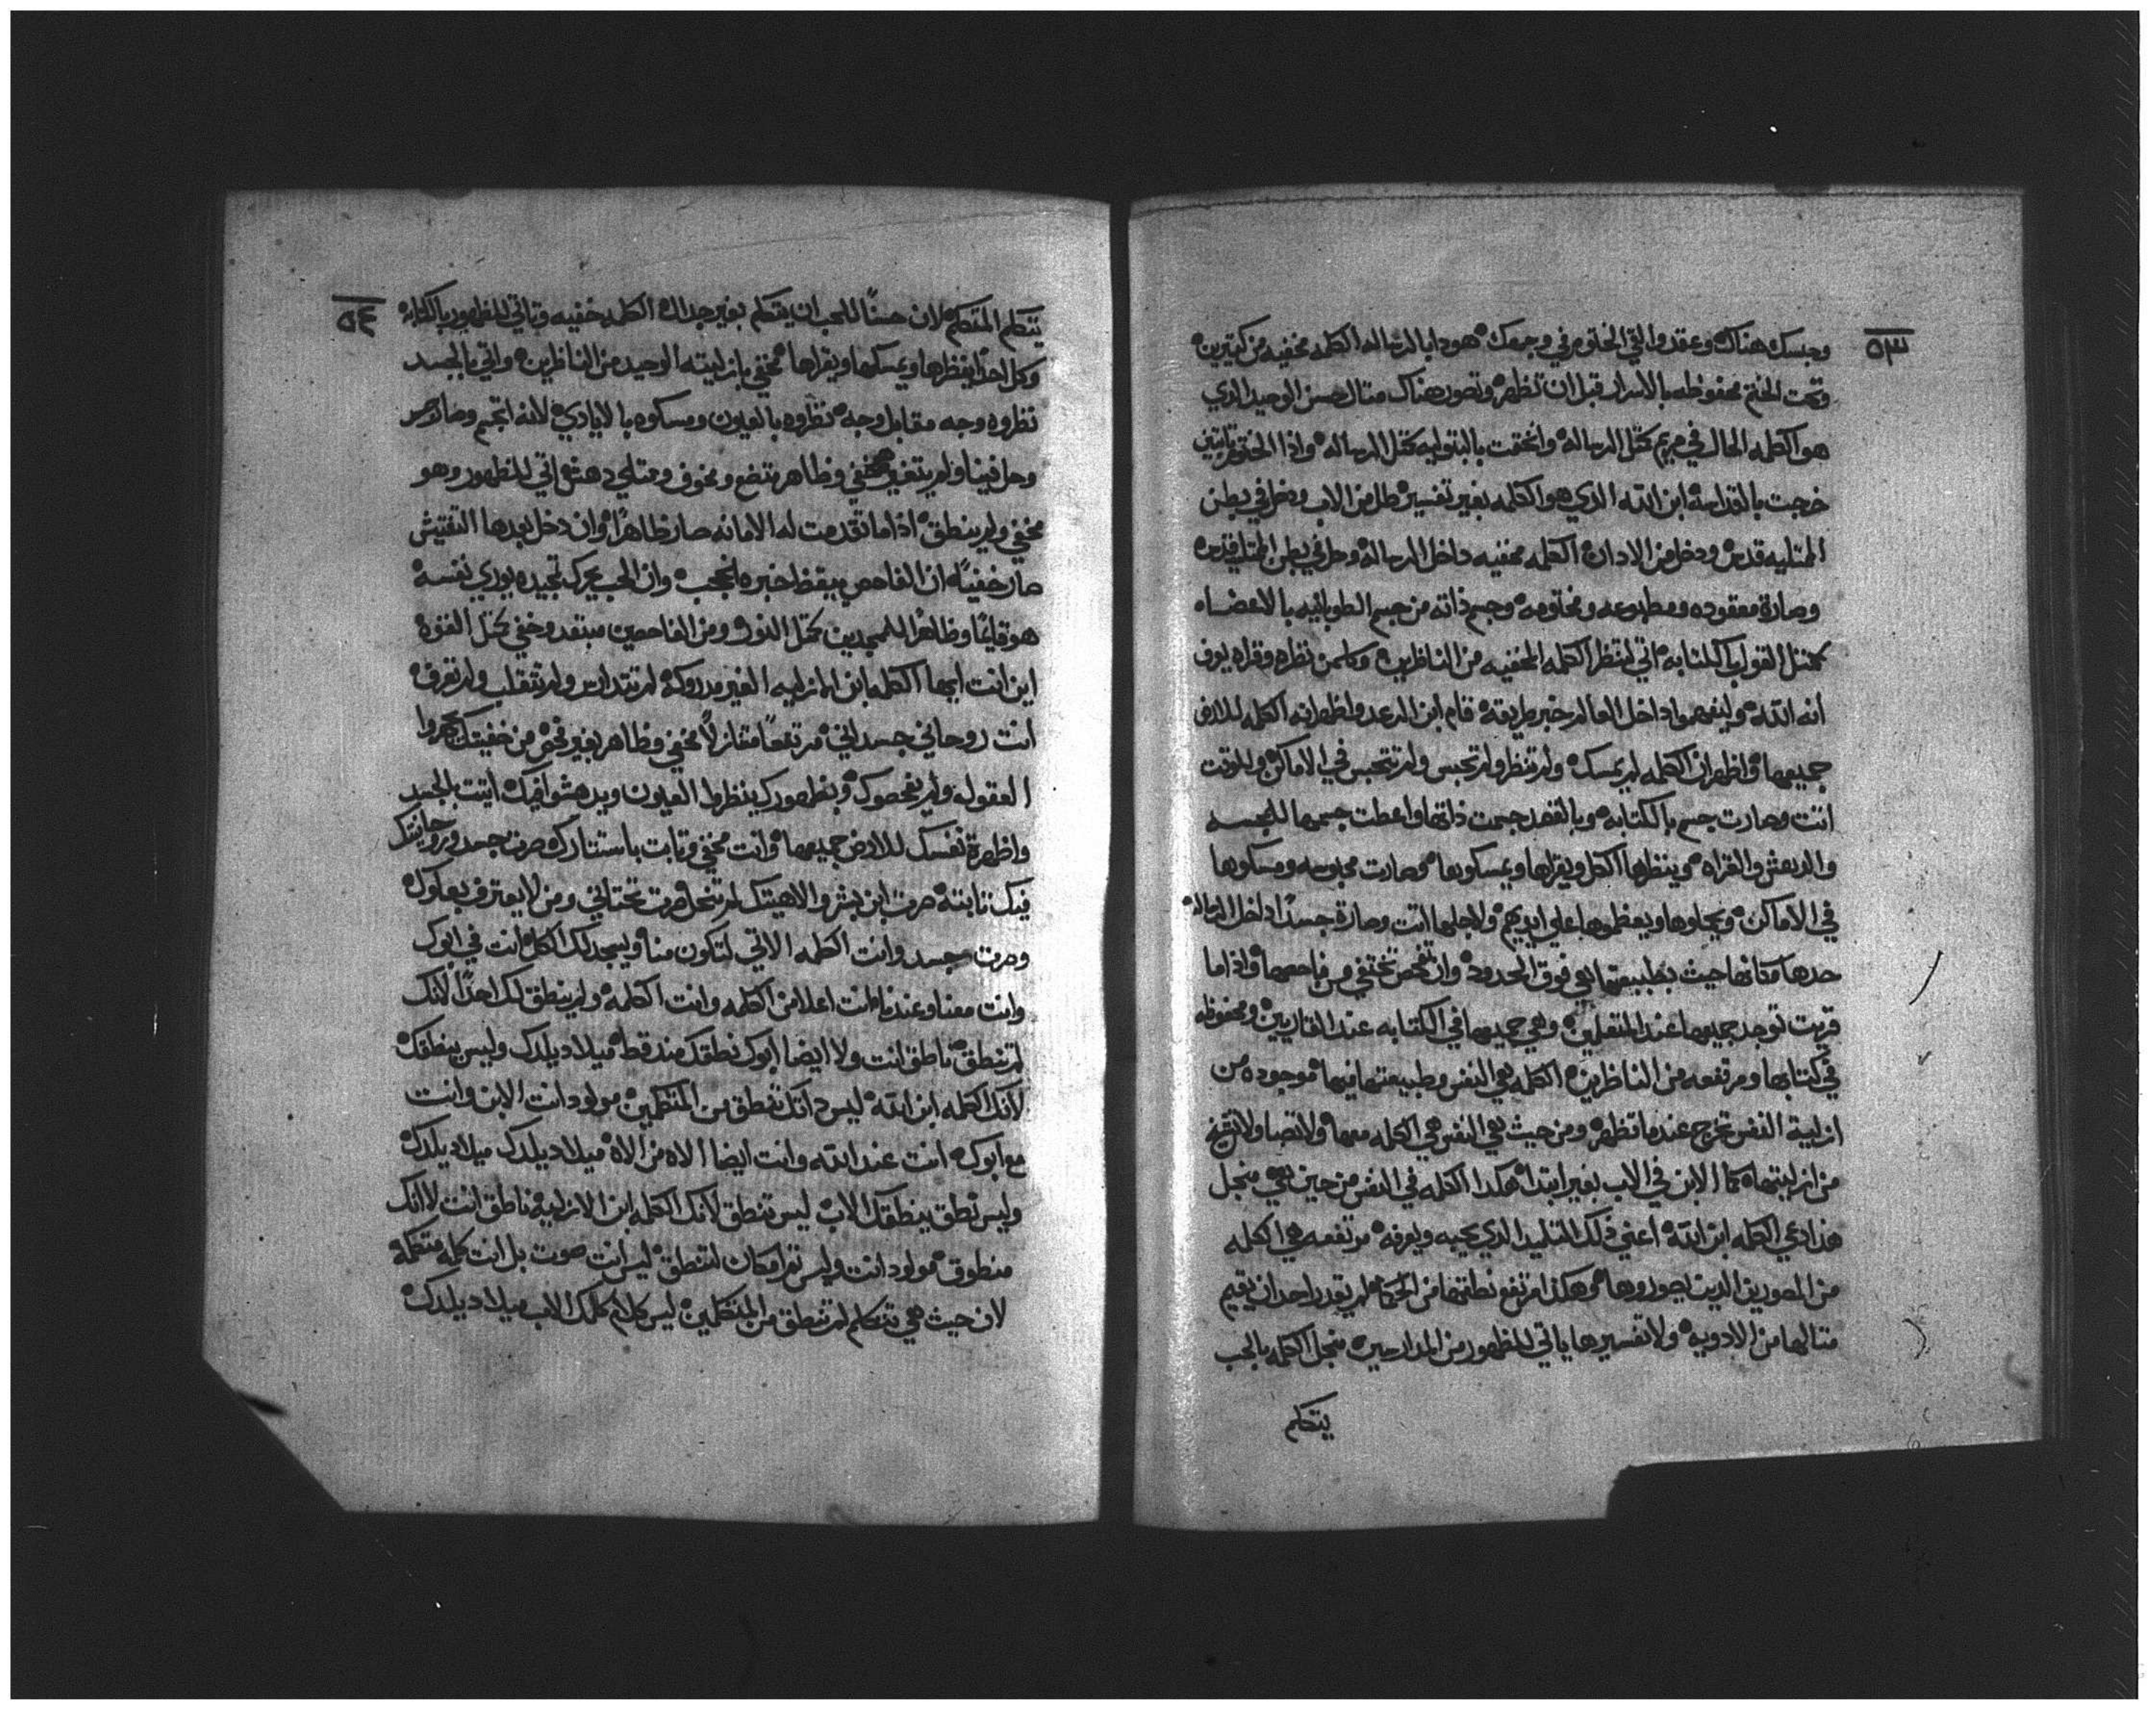 ٥٣
وحبسك هناك وعقد والقي الختوم في وجهك هودا بالرساله الكلمه مخفيه من كتيرين
وتحت الختم محفوظه بالاسرار قبل ان تظهر وتصور هناك متال حسن الوحيد الدي
هو الكلمه الحال في مريم كمتل الرساله وانختمت بالبتوليه كمتل الرساله واذا الختوم تابتين
خرجت بالقداسه ابن الله الدي هو الكلمه بغير تفسير طل من الاب ودخل في بطن
الممتليه قدس ودخل من الادان الكلمه مخفيه داخل الرساله وحل في بطن الممتليه قدس
وصارة معقوده ومطبوعه ومختومه وجسم ذاته من جسم الطوبانيه بالاعضاء
كمتل القول بالكتابه اتي لتنظر الكلمه المخفيه من الناظرين وكلمن نظره وقراه يعرف
انه الله وليفهموا داخل العالم خبر طريقته قام ابن الرعد واظهر انه الكلمه للارض
جميعها واظهر ان الكلمه لم يمسك ولم تنظر ولم تحبس ولم تتحبس في الاماكن وللوقت
اتت وصارت جسم بالكتابه وبالقصد جسمت ذاتها واعطت جسمها للمجسه
والدهش والقراه وينظرها الكل ويقراها ويمسكوها وصارت محبوسه ومسكوها
في الاماكن ويحملوها ويعظموها علي ايديهم ولاجلها اتت وصارة جسدا داخل الرساله
حدها مكانها حيث بطبيعتها هي فوق الحدود وان تفحص تختفي من فاحصها واذاما
قريت توجد جميعها عند المتعلمين وهي جميعها في الكتابه عند القاريين ومحفوظه
في كتابها ومرتفعه من الناظرين الكلمه هي النفس وطبيعتها فيها موجوده من
ازلية النفس تخرج عندما تظهر ومن حيث هي النفس هي الكلمه معها ولا تصاولا تفرغ
من ازليتها كما الابن في الاب بغير ابتدا هكدا الكلمه في النفس من حين هي منجل
هدا دعي الكلمه ابن الله اعني ذلك التلميد الدي يحبه ويعرفه مرتفعه هي الكلمه
من المصورين الدين يصوروها وهكدا مرتفع نطقها من الحكما لم يقدر احد ان يقيم
متالها من الادويه ولا تفسيرها ياتي للظهور من المدارحين منجل الكلمه بالحب
يتكلم
٥٤
يتكلم المتكلم لان حسنًا للحب ان يتكلم بغير جدال الكلمه خفيه وتاتي للظهور بالكتابه
وكل احدًا ينظرها ويمسكها ويقراها مختفي بازليته الوحيد من الناظرين واتي بالجسد
نظروه وجه مقابل وجه نظروه بالعيون ومسكوه بالايادي لانه اتجسم وصار
وحل فينا ولم يتغير مختفي وظاهر متضع ومخوف وممتلي دهش اتي للظهور وهو
مخفي ولم ينطق اذاما تقدمت له الامانه صار ظاهرًا وان دخل بعدها التفتيش
صار خفيًا ان الفاحص يبقظ خبره انحجب وان الحب يحرك تمجيده يوري نفسه
هو قايمًا وظاهرًا للممجدين كمتل النور ومن الفاحصين مبتعد وخفي كمتل القوه
اين انت ايها الكلمه ابن الازليه الغير مدروكه لم تتدارس ولم تتقلب ولم تعرف
انت روحاني جسداني مرتفعًا متنازلاً مخفي وظاهر بغير فحص من خفيتك تحيروا
العقول ولم يفحصوك وبظهورك ينظروا العيون ويدهشوا فيك اتيت بالجسد
واظهرة نفسك للارض جميعها وانت مخفي وتابت باستتارك صرت جسد وروحانيتك
فيك تابته صرت ابن بشر والاهيتك لم تنحل صرت تحتاني ومن لا يعترف بعلوك
وصرت مجسد وانت الكلمه الاتي لتكون منا ويسجد لك الكل انت في ابوك
وانت معنا وعندنا انت اعلا من الكلمه وانت الكلمه ولم ينطق لك احدًا لانك
لم تنطق ناطق انت ولا ايضا ابوك نطقك مند قط ميلاد يلدك وليس ينطقك
لانك الكلمه ابن الله ليس دانك تنطق من المتكلمين مولود انت الابن وانت
مع ابوك انت عند الله وانت ايضا الاه من الاه ميلاد يلدك ميلاد يلدك
وليس نطق ينطقك الاب ليس تنطق لانك الكلمه ابن الازليه ناطق انت لا انك
منطوق مولود انت وليس تم امكان لتنطق ليس انت صوت بل انت كلمه متكلمه
لان حيث هي تتكلم لم تنطق من المتكلمين ليس كلام كلمك الاب ميلاد يلدك